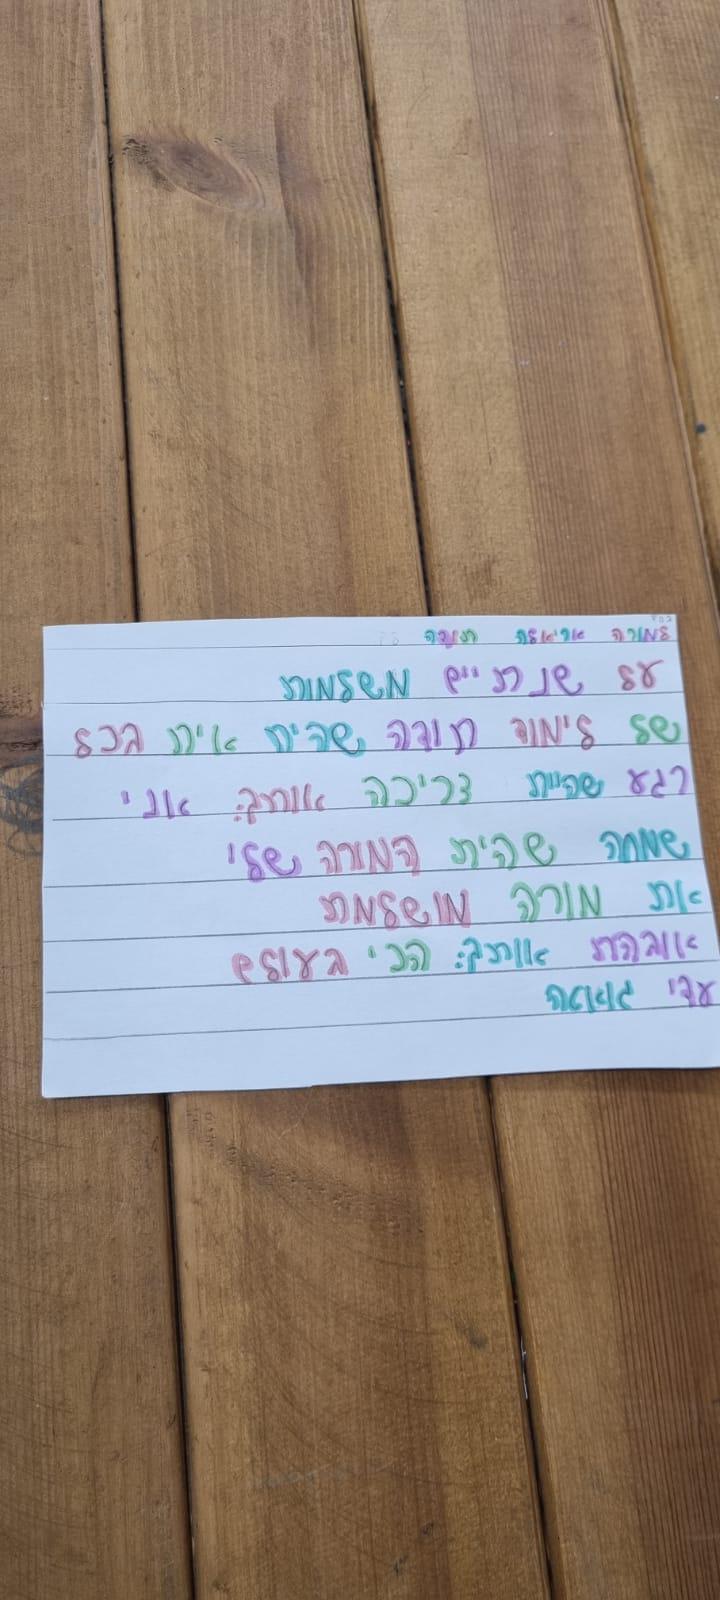 בס"ד
למורה אריאלה תודה
על שנתיים משלמות
של לימוד תודה שהית איתי בכל
רגע שהיית צריכה אותך. אני
שמחה שהית המורה שלי
את מורה מושלמת
אוהבת אותך: הכי בעולם
עדי